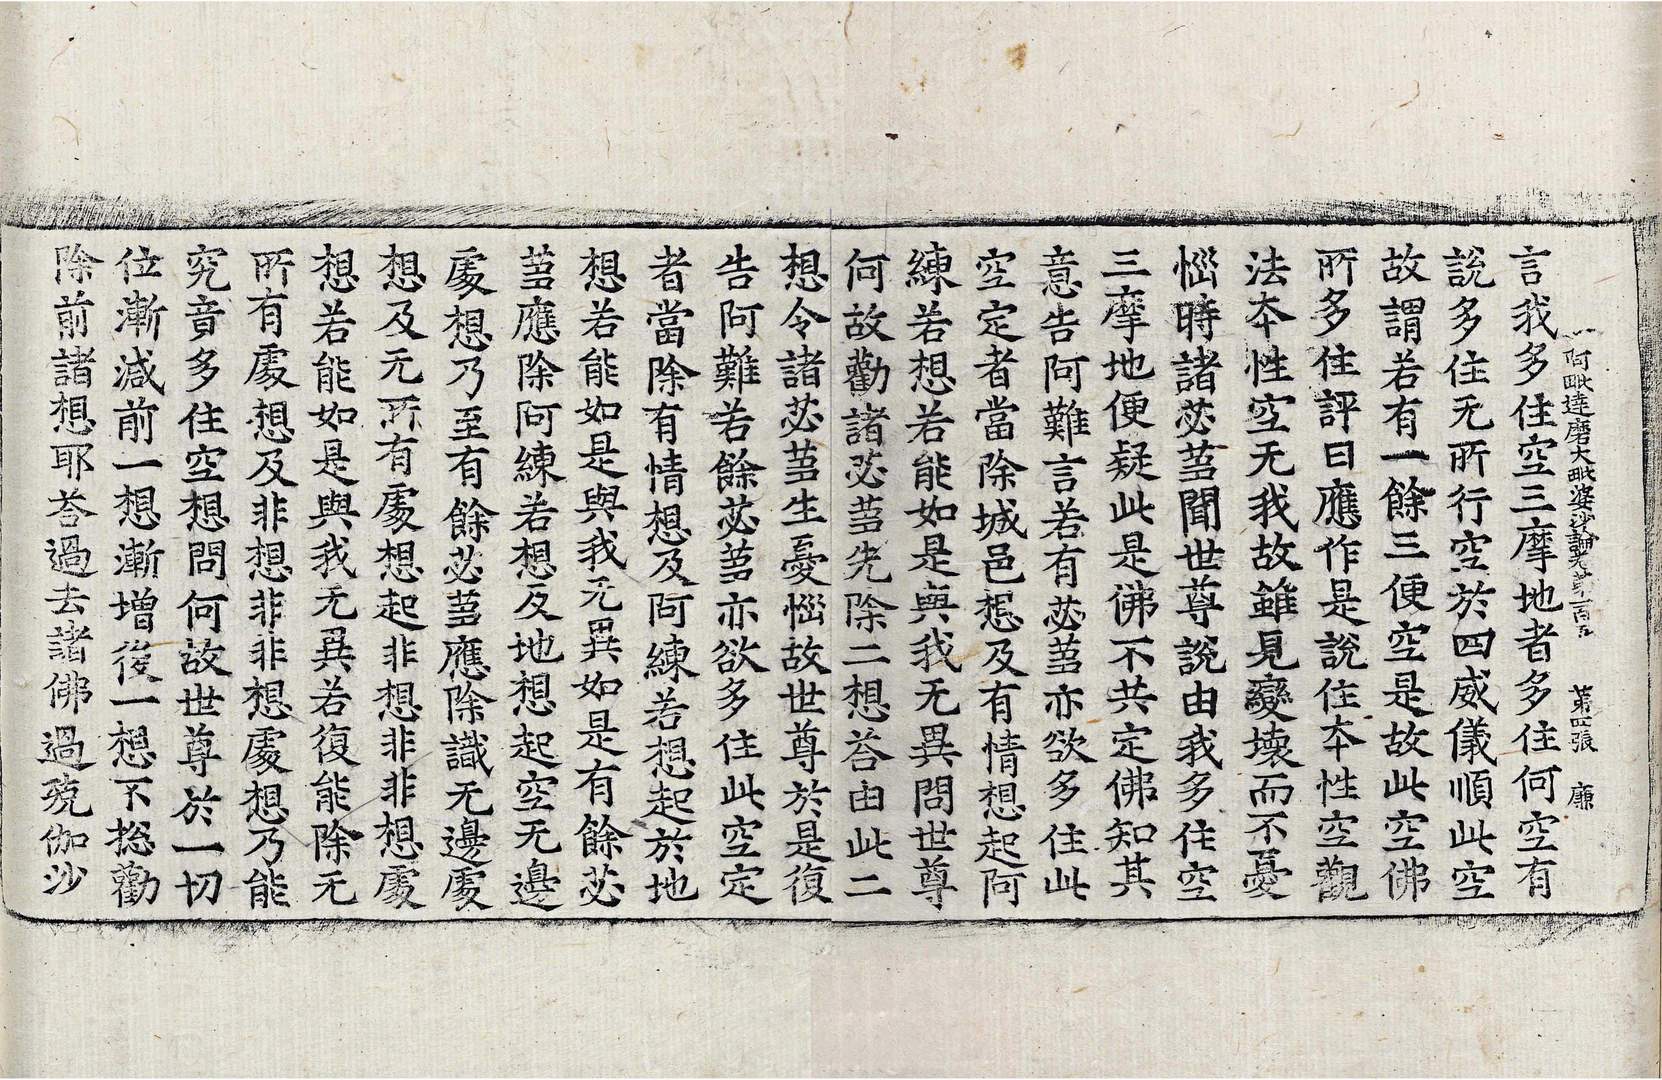 阿毗達磨大毗婆沙論卷第一百五 第四張 廉
言我多住空三摩地者多住何空有
說多住无所行空於四威儀順此空
故謂若有一餘三便空是故此空佛
所多住評曰應作是說住本性空觀
法本性空无我故雖見變壞而不憂
惱時諸苾蒭聞世尊說由我多住空
三摩地便疑此是佛不共定佛知其
意告阿難言若有苾蒭亦欲多住此
空定者當除城邑想及有情想起阿
練若想若能如是與我无異問世尊
何故勸諸苾蒭先除二想荅由此二
想令諸苾蒭生憂惱故世尊於是復
告阿難若餘苾蒭亦欲多住此空定
者當除有情想及阿練若想起於地
想若能如是與我无異如是有餘苾
蒭應除阿練若想及地想起空无邊
處想乃至有餘苾蒭應除識无邊處
想及无所有處想起非想非非想處
想若能如是與我无異若復能除无
所有處想及非想非非想處想乃能
究竟多住空想問何故世尊於一切
位漸減前一想漸增後一想不捴勸
除前諸想耶荅過去諸佛過殑伽沙